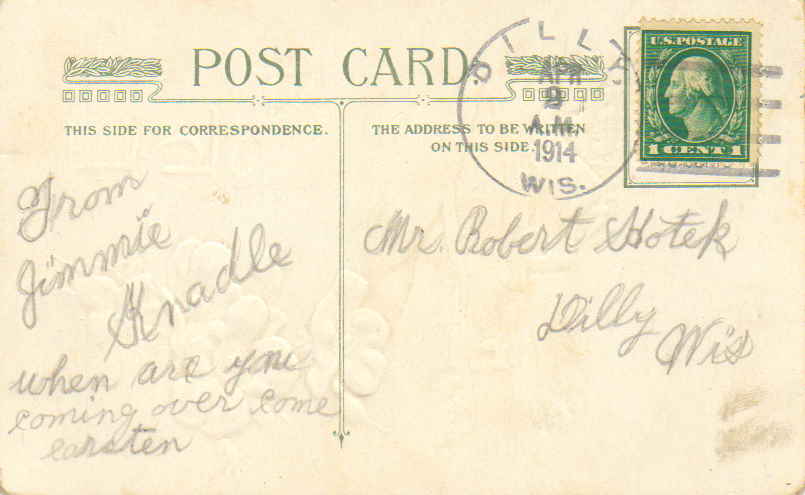 POST CARD
THIS SIDE FOR CORRESPONDENCE.
THE ADDRESS TO BE WRITTEN
ON THIS SIDE.
DILLY,
APR
2
A.M.
1914
WIS.
U.S. POSTAGE
1 CENT 1
From
Jimmie
Knadle
when are you
coming over come
Mr. Robert Hotek
Dilly
Wis